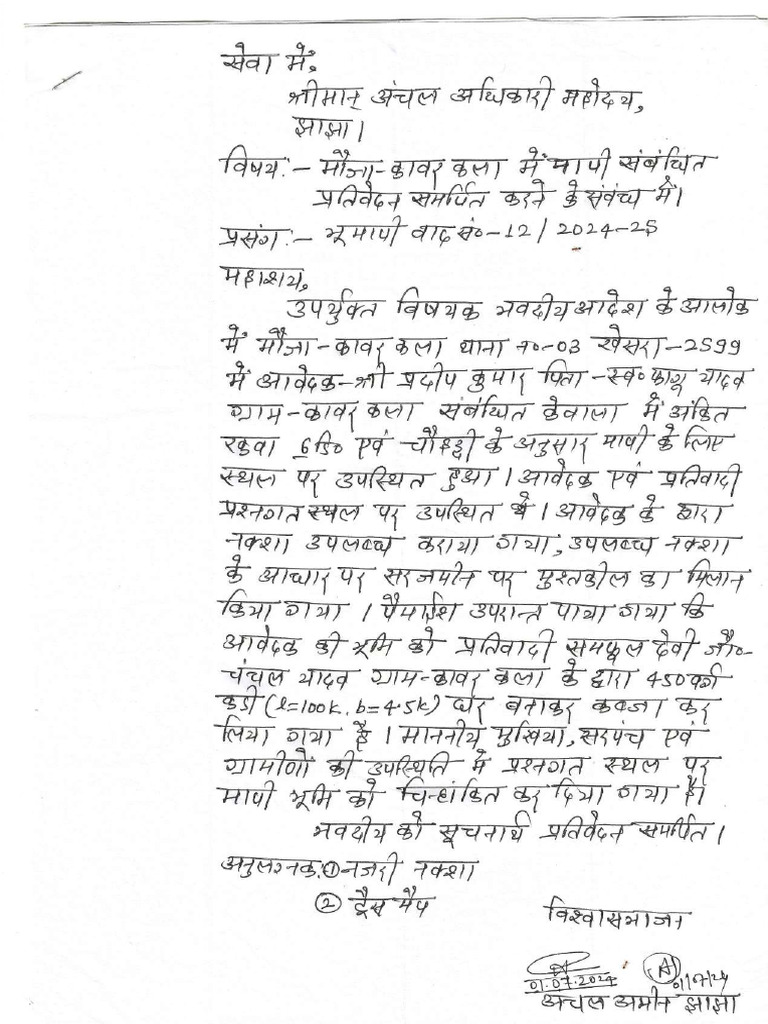 सेवा में,
श्रीमान् अंचल अधिकारी महोदय,
झाझा।
विषय:- मौजा-कावर कला में मापी संबंधित
प्रतिवेदन समर्पित करने के संबंध में।
प्रसंग:- भूमापी वाद सं०-12/2024-25
महाशय,
उपर्युक्त विषयक भवदीय आदेश के आलोक
में मौजा-कावर कला थाना न०-03 खेसरा-2599
में आवेदक-श्री प्रदीप कुमार पिता-स्व० फागू यादव
ग्राम-कावर कला संबंधित केवाला में अंकित
रकवा 6डि० एवं चौहद्दी के अनुसार मापी के लिए
स्थल पर उपस्थित हुआ। आवेदक एवं प्रतिवादी
प्रश्नगत स्थल पर उपस्थित थे। आवेदक के द्वारा
नक्शा उपलब्ध कराया गया, उपलब्ध नक्शा
के आधार पर सरजमीन पर मुस्तकील का मिलान
किया गया। पैमाईश उपरान्त पाया गया कि
आवेदक की भूमि को प्रतिवादी समफूल देवी जौ०-
चंचल यादव ग्राम-कावर कला के द्वारा 450वर्ग
कड़ी (l=100k, b=4.5k) घर बनाकर कब्जा कर
लिया गया है। माननीय मुखिया, सरपंच एवं
ग्रामीणों की उपस्थिति में प्रश्नगत स्थल पर
मापी भूमि को चिन्हांकित कर दिया गया है।
भवदीय को सूचनार्थ प्रतिवेदन समर्पित।
अनुलग्नक:① नजरी नक्शा
② ट्रैस मैप
विश्वासभाजन
01.07.2024
01/07/24
अंचल अमीन झाझा